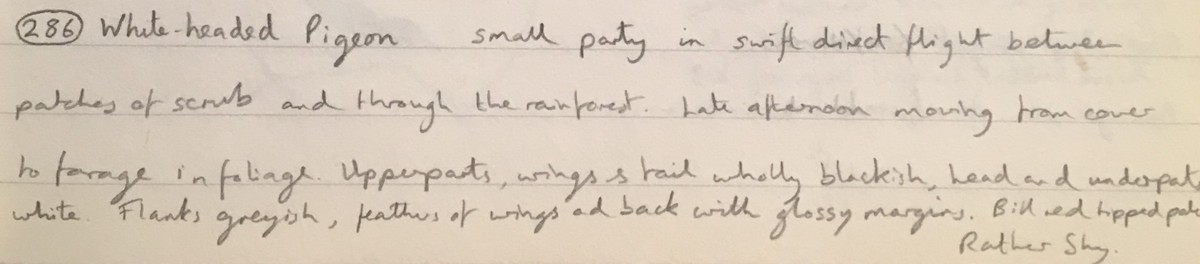 286 White-headed Pigeon small party in swift direct flight between
patches of scrub and through the rainforest. Late afternoon moving from cover
to forage in foliage. Upperparts, wings & tail wholly blackish, head and underpat
white. Flanks greyish, feathers of wings ad back with glossy margins. Bill red tipped pale
Rather Shy.